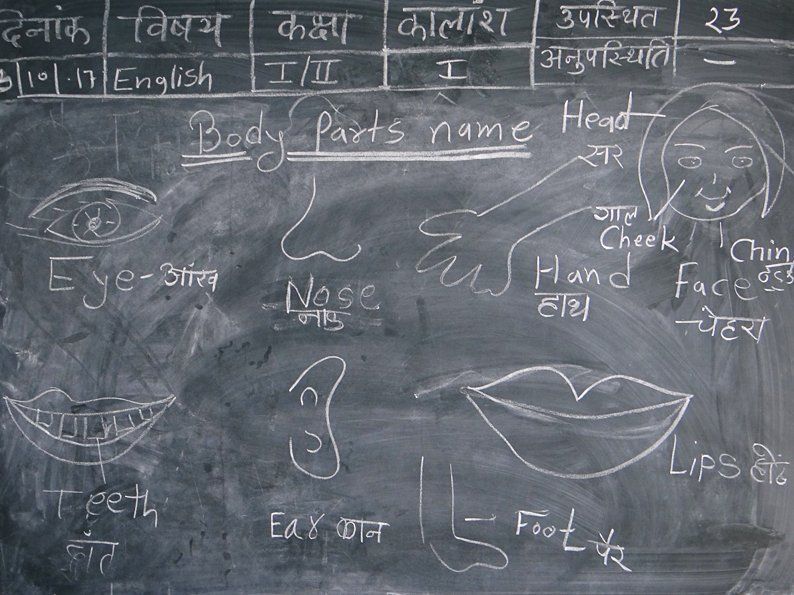 दिनांक विषय कक्षा कालांश उपस्थित 23
3/10/.17 English I/II I अनुपस्थिति –
Body Parts name
Head
सर
गाल
Cheek
Chin
Eye-आंख
Nose
नाक
Hand
हाथ
Face
चेहरा
Teeth
दांत
Ear कान
Foot पैर
Lips होंठ